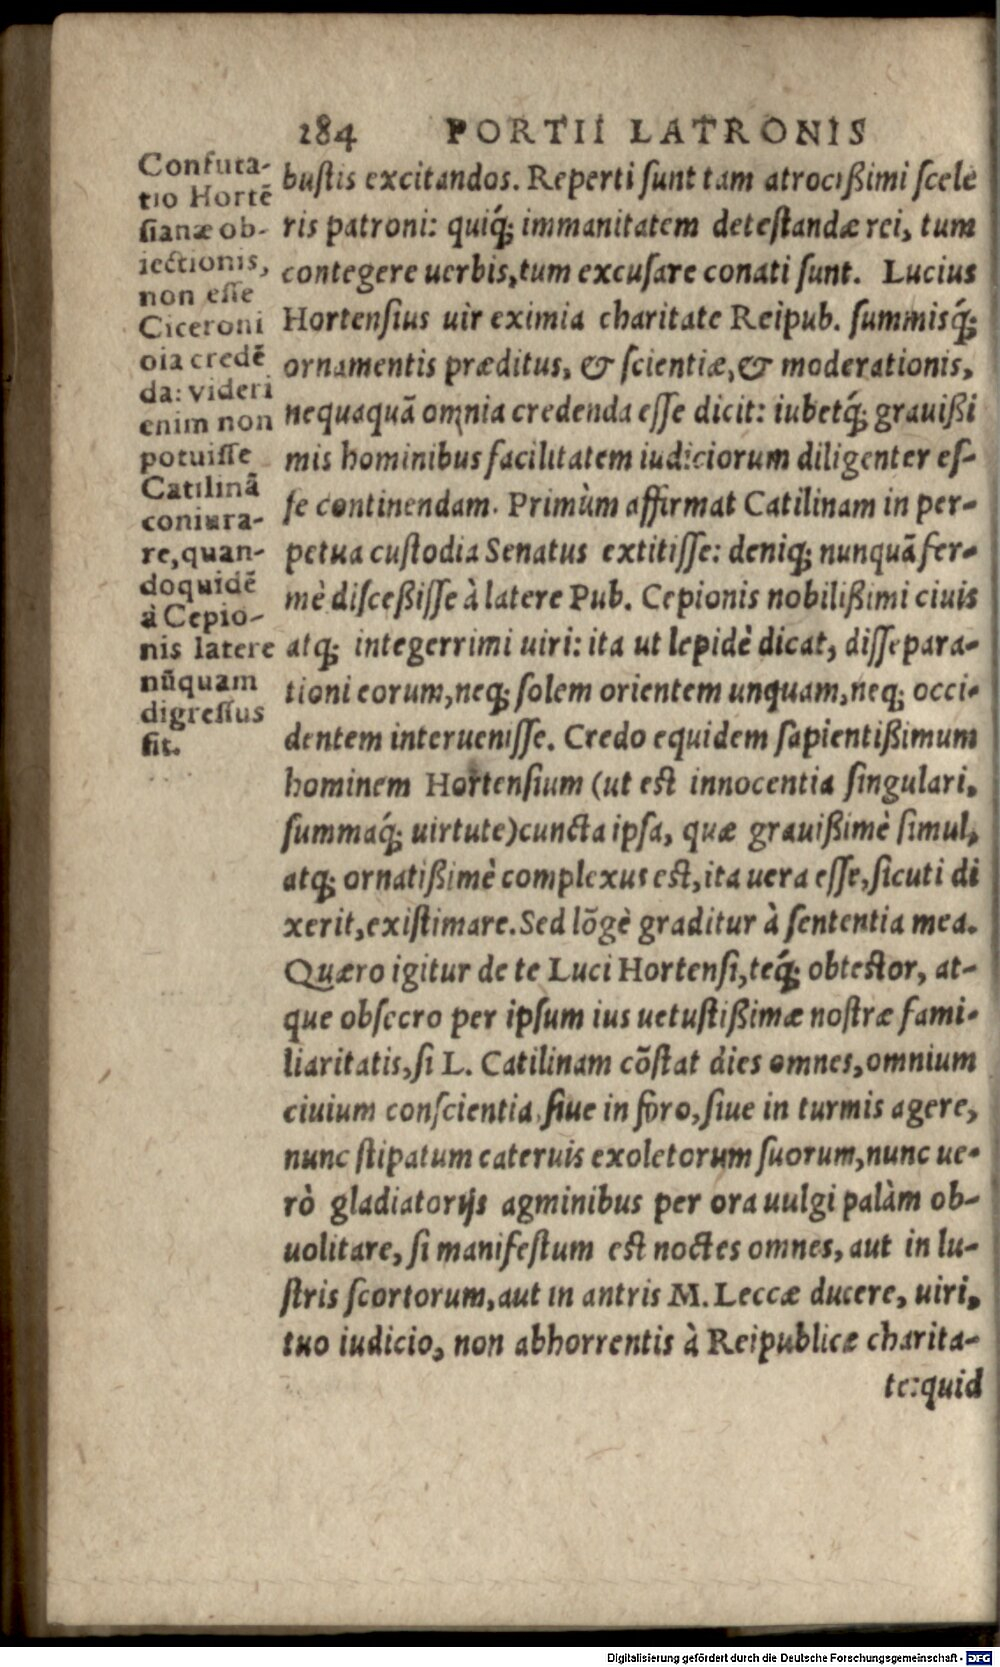 184 PORTII LATRONIS
Confuta-
tio Hortẽ
sianæ ob-
iectionis,
non esse
Ciceroni
oĩa credẽ
da: videri
enim non
potuisse
Catilinã
coniura-
re, quan-
doquidẽ
à Cepio-
nis latere
nũquam
digressus
sit.
bustis excitandos. Reperti sunt tam atrocißimi scele
ris patroni: quiq́; immanitatem detestandæ rei, tum
contegere uerbis, tum excusare conati sunt. Lucius
Hortensius uir eximia charitate Reipub. summisq́;
ornamentis præditus, & scientiæ, & moderationis,
nequaquã omnia credenda esse dicit: iubetq́; grauißi
mis hominibus facilitatem iudiciorum diligenter es-
se continendam. Primùm affirmat Catilinam in per-
petua custodia Senatus extitisse: deniq; nunquã fer-
mè disceßisse à latere Pub. Cepionis nobilißimi ciuis
atq; integerrimi uiri: ita ut lepidè dicat, disse para-
tioni eorum, neq; solem orientem unquam, neq; occi-
dentem interuenisse. Credo equidem sapientißimum
hominem Hortensium (ut est innocentia singulari,
summaq́; uirtute) cuncta ipsa, quæ grauißimè simul,
atq; ornatißimè complexus est, ita uera esse, sicuti di
xerit, existimare. Sed lõgè graditur à sententia mea.
Quæro igitur de te Luci Hortensi, teq́; obtestor, at-
que obsecro per ipsum ius uetustißimæ nostræ fami-
liaritatis, si L. Catilinam cõstat dies omnes, omnium
ciuium conscientia, siue in foro, siue in turmis agere,
nunc stipatum cateruis exoletorum suorum, nunc ue-
rò gladiatorijs agminibus per ora uulgi palàm ob-
uolitare, si manifestum est noctes omnes, aut in lu-
stris scortorum, aut in antris M. Leccæ ducere, uiri,
tuo iudicio, non abhorrentis à Reipublicæ charita-
te: quid
Digitalisierung gefördert durch die Deutsche Forschungsgemeinschaft - DFG